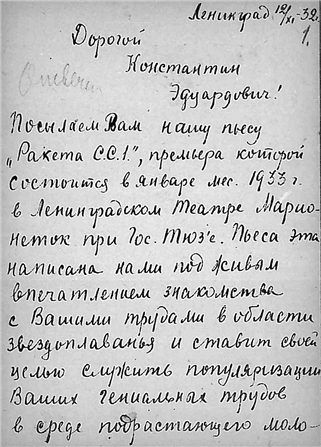 Ленинград 12/XI-32г.
1.
Дорогой
Константин
Эдуардович!
Отвечен
Посылаем Вам нашу пьесу
„Ракета С.С.1.", премьера которой
состоится в январе мес. 1933 г.
в Ленинградском Театре Марио-
неток при Гос. Тюз'е. Пьеса эта
написана нами под живым
впечатлением знакомства
с Вашими трудами в области
звездоплаванья и ставит своей
целью служить популяризации
Ваших гениальных трудов
в среде подрастающего моло-